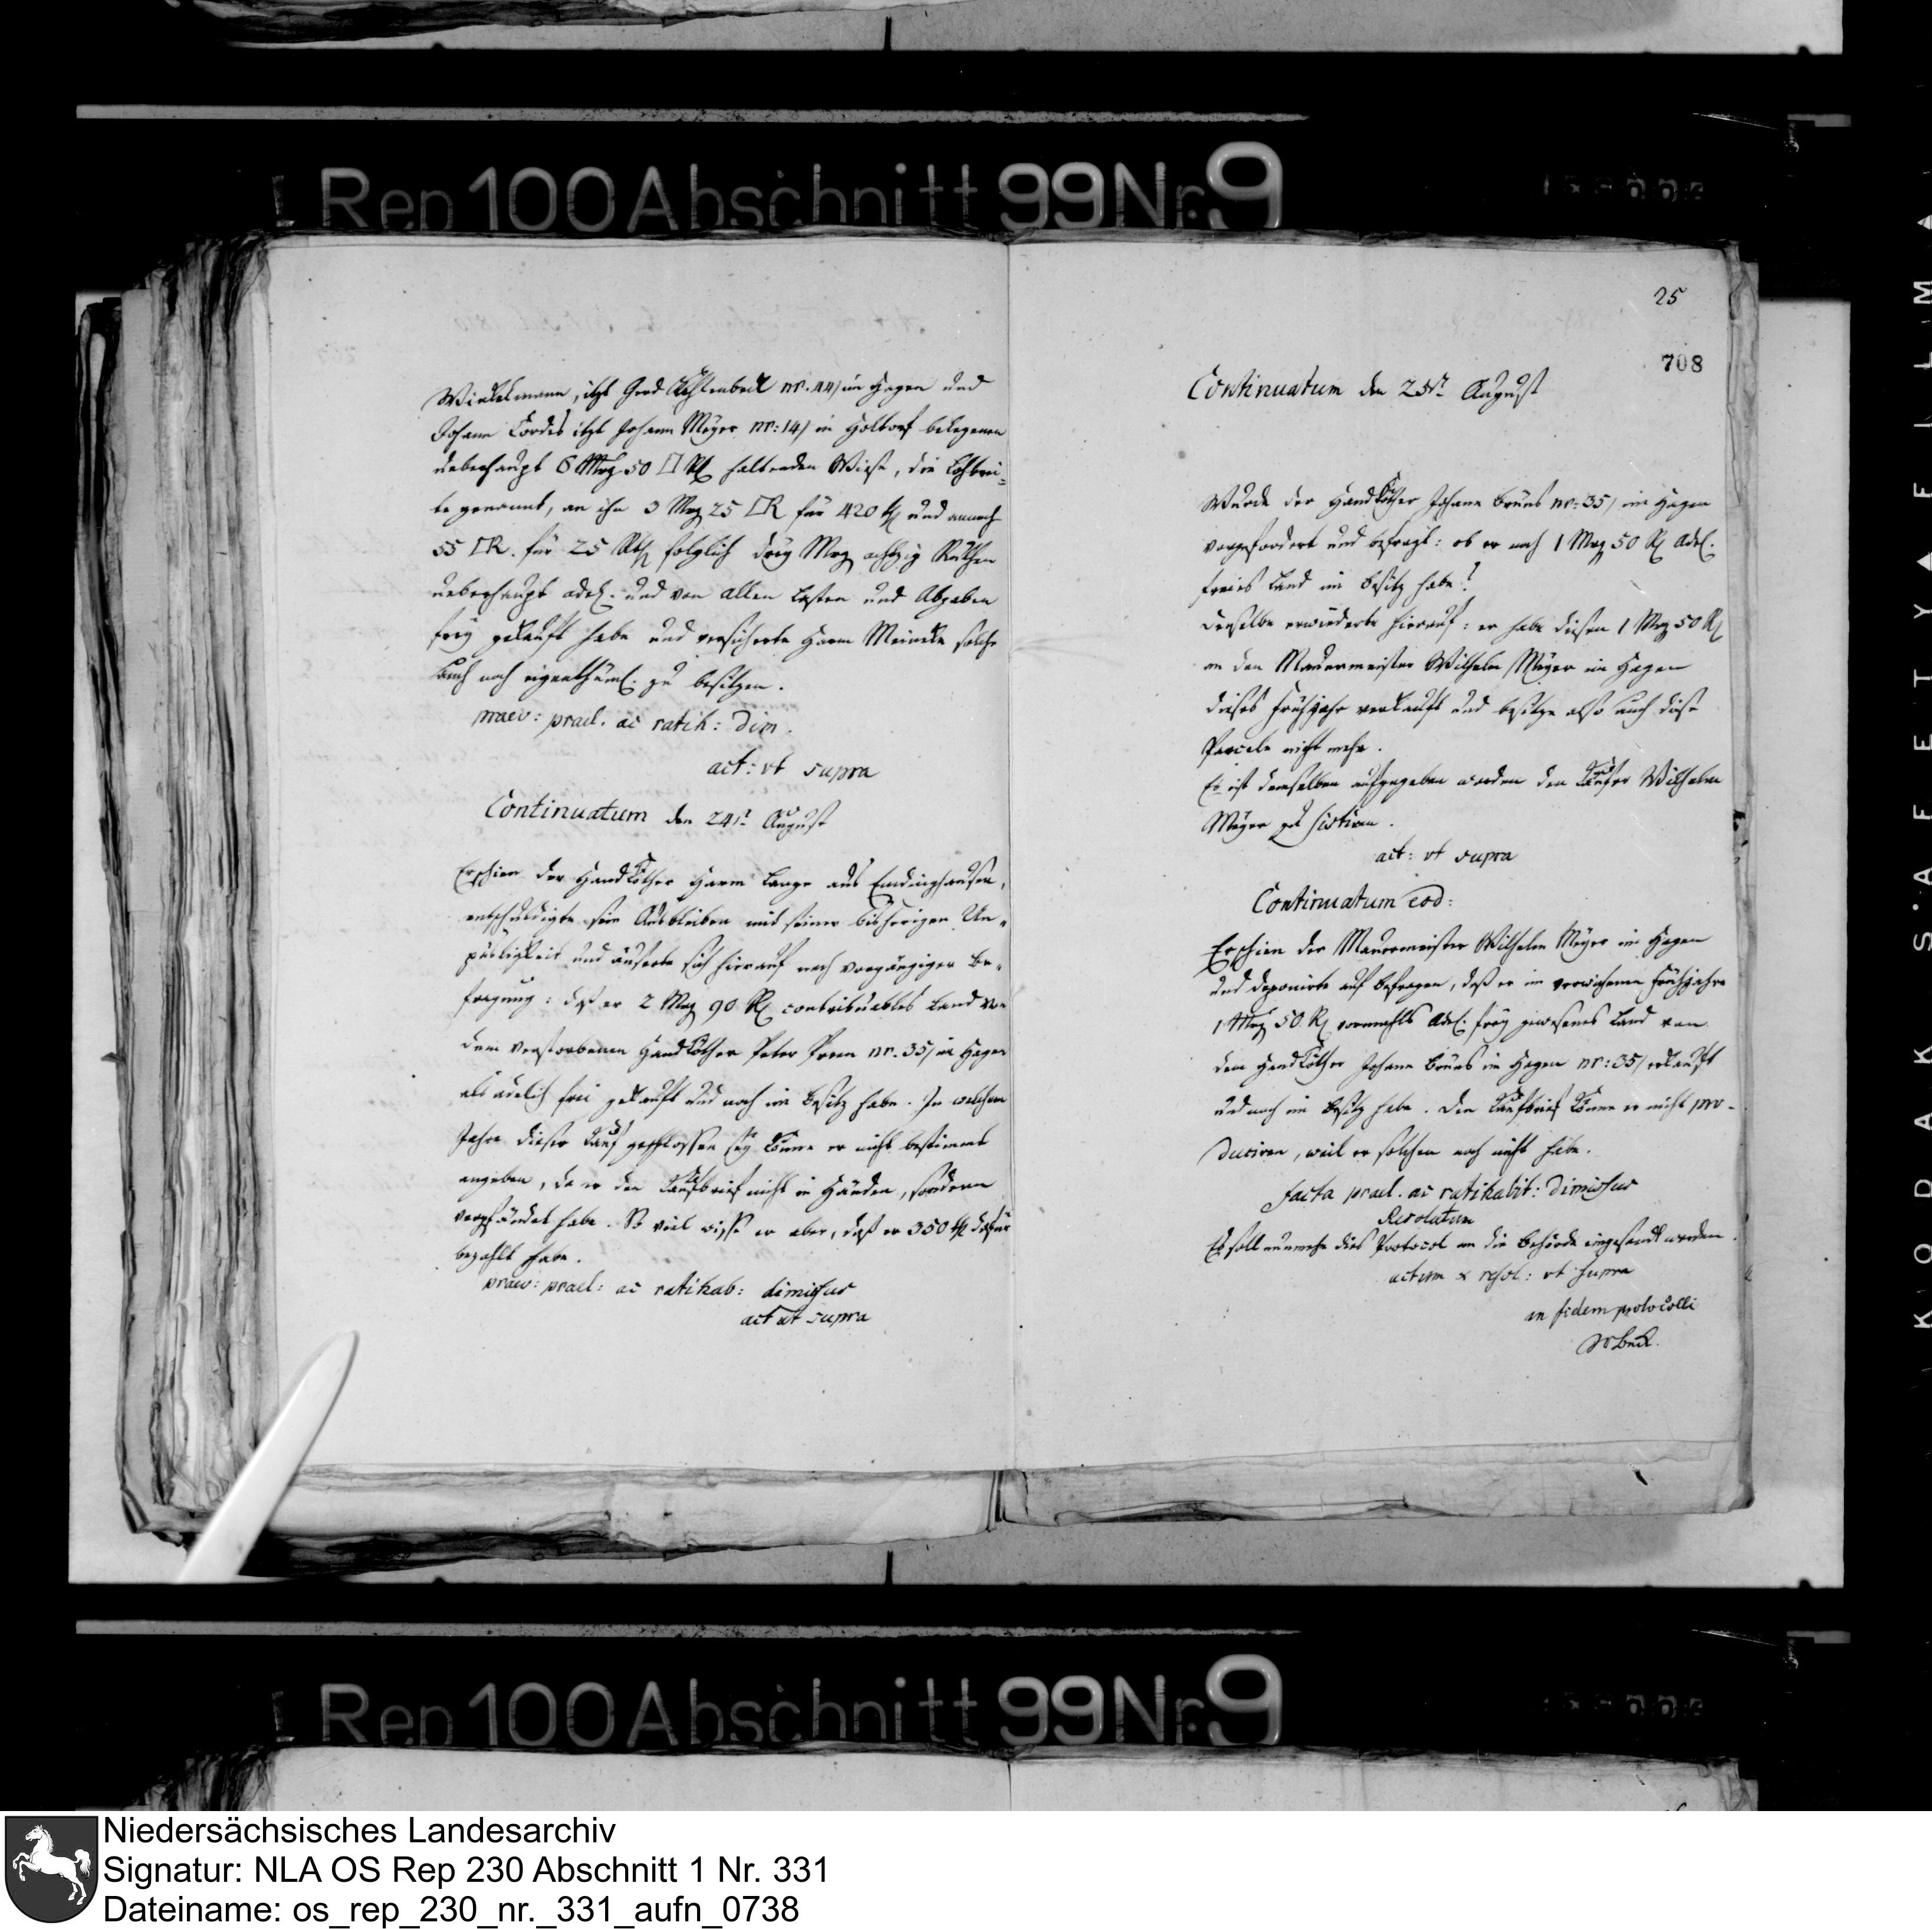 Rep 100 Abschnitt 99 Nr. 9
Winkelmann, itzt Gerd nr. 44) im Hagen und
Johann Cordes itzt Johann Meyer nr: 14) in Holtorf belegenen
ueberhaupt 6 Mrg 50 □ R haltenden Wiese, die
te genannt, an ihn 3 Mrg 25 □R für 420 und annoch
55 □R. für 25 folglich drey Mrg achtzig Ruthen
ueberhaupt adel. und von allen Lasten und Abgaben
frey gekauft habe und versicherte Harm Meineke solche
auch noch eigenthüml. zu besitzen.
praev: prael. ac ratih: dim.
act: ut supra
Continuatum den 24st August
Erschien der Handköther Harm Lange aus Emdinghausen,
entschuldigte sein Ausbleiben mit seiner bisherigen Un-
päslichkeit und äuserte sich hierauf nach vorgängiger Be-
fragung: daß er 2 Mrg 90 R contribuables Land von
dem verstorbenen Handköther Peter nr. 35) in Hagen
als adelich frei gekauft und noch im Besitz habe. In welchem
Jahre dieser Kauf geschlossen sey könne er nicht bestimmt
angeben, da er den Kaufbrief nicht in Händen, sondern
verpfändet habe. So viel wisse er aber, daß er 350 dafür
bezahlt habe.
praev: prael: ac ratihab: dimissus
act ut supra
25
708
Continuatum den 25st August
Wurde der Handköther Johann Bruns nr: 35) im Hagen
vorgefordert und befragt: ob er noch 1 Mrg 50 R adel.
freies Land im Besitz habe?
Derselbe erwiederte hierauf: er habe diesen 1 Mrg 50 R
an den Mauermeister Wilhelm Meyer im Hagen
dieses Frühjahr verkauft und besitze also auch diese
Parcele nicht mehr.
Es ist demselben aufgegeben worden den Käufer Wilhelm
Meyer zu sistiren.
act: ut supra
Continuatum eod:
Erschien der Mauermeister Wilhelm Meyer im Hagen
und deponirte auf Befragen, daß er im verwichenen Frühjahre
1 Mrg 50 R vormahls adel. frey gewesenes Land von
dem Handköther Johann Bruns im Hagen nr: 35) erkauft
und noch im Besitz habe. Den Kaufbrief könne er nicht pro-
duciren, weil er solchen noch nicht habe.
facta prael. ac ratihabit: dimissus
Resolutum
Es soll nunmehr dies Protocol an die Behörde eingesandt werden.
actum & resol: ut supra
in fidem protocolli
Rep 100 Abschnitt 99 Nr. 9
KODAK SAFETY FILM
Niedersächsisches Landesarchiv
Signatur: NLA OS Rep 230 Abschnitt 1 Nr. 331
Dateiname: os_rep_230_nr._331_aufn_0738